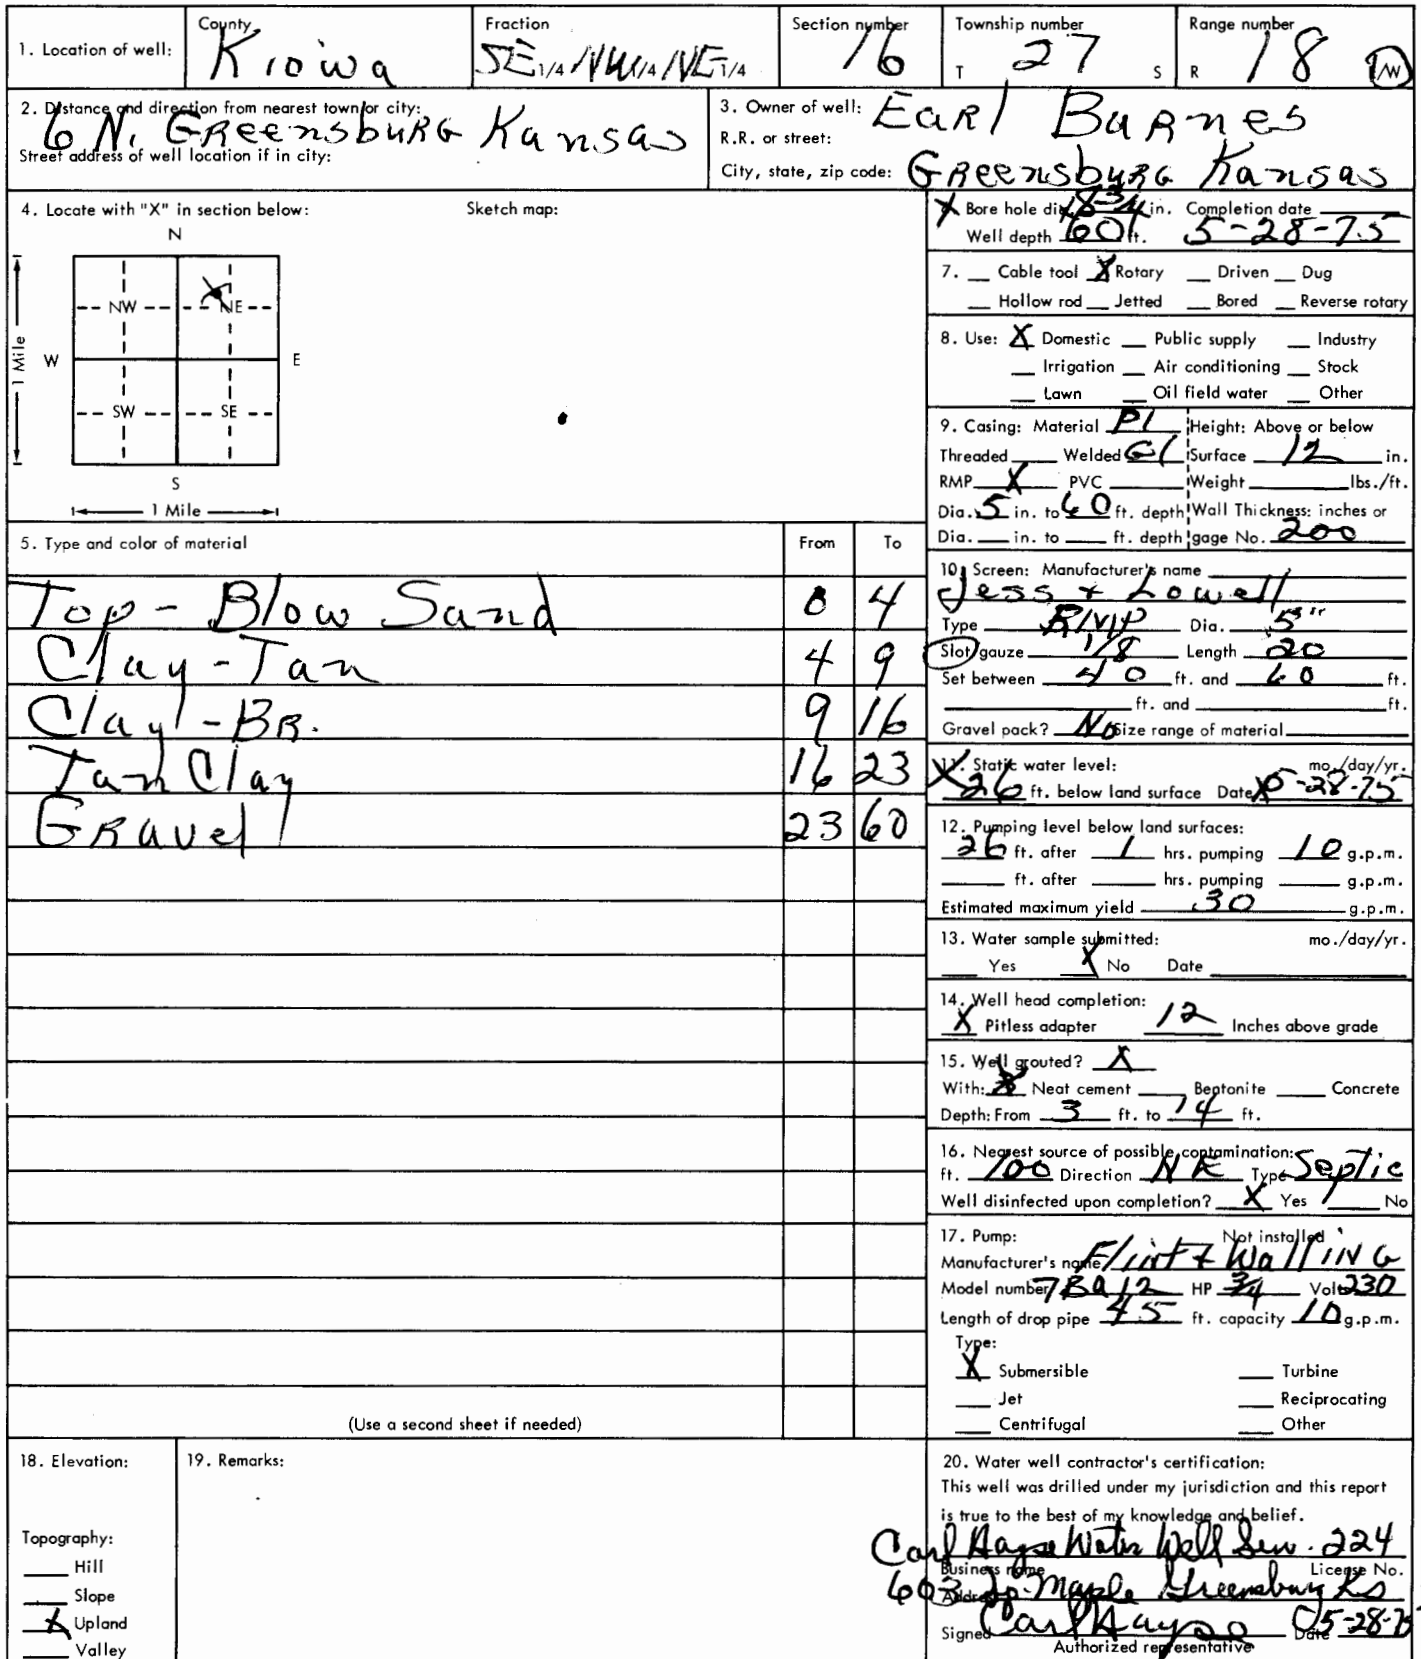 1. Location of well: County Kiowa Fraction SE 1/4 NW 1/4 NE 1/4 Section number 16 Township number T 27 S Range number R 18 /W
2. Distance and direction from nearest town or city: 6 N. Greensburg Kansas
Street address of well location if in city:
3. Owner of well: Earl Barnes
R.R. or street:
City, state, zip code: Greensburg Kansas
4. Locate with "X" in section below: Sketch map:
N
NW NE
W E
1 Mile
SW SE
S
1 Mile
5. Type and color of material From To
Top - Blow Sand 0 4
Clay - Tan 4 9
Clay - BR. 9 16
Tan Clay 16 23
Gravel 23 60
(Use a second sheet if needed)
X Bore hole dia. in. Completion date
Well depth 60 ft. 5-28-75
7. Cable tool X Rotary Driven Dug
Hollow rod Jetted Bored Reverse rotary
8. Use: X Domestic Public supply Industry
Irrigation Air conditioning Stock
Lawn Oil field water Other
9. Casing: Material Pl Height: Above or below
Threaded Welded Gl Surface 12 in.
RMP X PVC Weight lbs./ft.
Dia. 5 in. to 60 ft. depth Wall Thickness: inches or
Dia. in. to ft. depth gage No. 200
10. Screen: Manufacturer's name
Jess + Lowell
Type Dia. 5"
Slot/gauze 1/8 Length 20
Set between 40 ft. and 60 ft.
ft. and ft.
Gravel pack? No Size range of material
11. Static water level: mo./day/yr.
X 26 ft. below land surface Date 5-28-75
12. Pumping level below land surfaces:
26 ft. after 1 hrs. pumping 10 g.p.m.
ft. after hrs. pumping g.p.m.
Estimated maximum yield 30 g.p.m.
13. Water sample submitted: mo./day/yr.
Yes X No Date
14. Well head completion:
X Pitless adapter 12 Inches above grade
15. Well grouted? X
With: X Neat cement Bentonite Concrete
Depth: From 3 ft. to 14 ft.
16. Nearest source of possible contamination:
ft. 100 Direction NE Type Septic
Well disinfected upon completion? X Yes No
17. Pump: Not installed
Manufacturer's name Flint + Walling
Model number 7BQ12 HP 3/4 Volt 230
Length of drop pipe 45 ft. capacity 10 g.p.m.
Type:
X Submersible Turbine
Jet Reciprocating
Centrifugal Other
18. Elevation:
Topography:
Hill
Slope
X Upland
Valley
19. Remarks:
20. Water well contractor's certification:
This well was drilled under my jurisdiction and this report
is true to the best of my knowledge and belief.
Carl Hayse Water Well Serv. 224
Business name License No.
603 So. Maple Greensburg Ks
Address
Signed Carl Hayse Date 5-28-75
Authorized representative